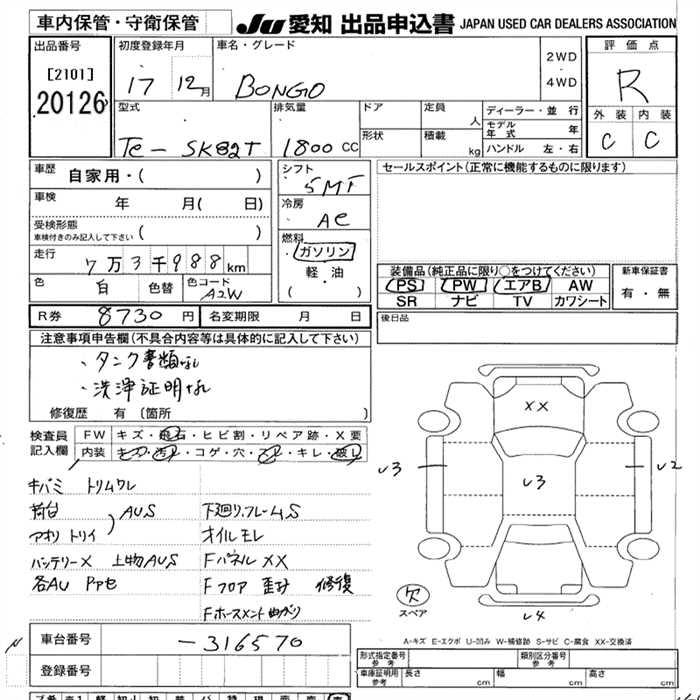 車内保管・守衛保管
JU 愛知 出品申込書 JAPAN USED CAR DEALERS ASSOCIATION
出品番号
[2101]
20126
初度登録年月
17 12月
車名・グレード
BONGO
2WD
4WD
評価点
R
外装 内装
C C
型式
TC-SK82T
排気量
1800 CC
ドア
形状
定員
人
積載
kg
ディーラー・並行
モデル年式 年
ハンドル 左・右
車歴 自家用・( )
車検 年 月( 日)
受検形態
車検付きのみ記入して下さい ( )
走行 7万3千988km
色 白 色替 色コード A2W
シフト
5MT
冷房
AC
燃料
・ガソリン
軽・油
( )
セールスポイント(正常に機能するものに限ります)
装備品(純正品に限り○をつけてください)
PS PW エアB AW
SR ナビ TV カワシート
新車保証書
有・無
R券 8730円 名変期限 月 日
後日品
注意事項申告欄(不具合内容等は具体的に記入して下さい)
・タンク書類なし
・洗浄証明なし
修復歴 有 〔箇所 〕
検査員記入欄
FW キズ・飛石・ヒビ割・リペア跡・X要
内装 キズ・汚れ・コゲ・穴・スレ・キレ・破レ
キバミ トリムワレ
荷台 AUS
アオリ トリイ
バッテリーX 上物AUS
各AU PPセ
下廻り.フレームS
オイルモレ
Fパネル XX
Fフロア 歪み 修復
Fホースメント曲がり
XX
U3
U3
U2
U4
欠
スペア
A-キズ E-エクボ U-凹み W-補修跡 S-サビ C-腐食 XX-交換済
車台番号 -316570
登録番号
形式指定番号 参考
類別区分番号 参考
車庫証明用 参考 長さ cm 幅 cm 高さ cm